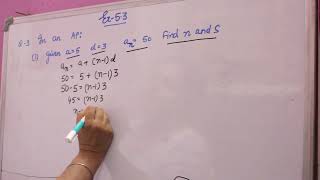 Ex-5.3
Q-3 In an AP:
(i) given a=5 d=3 aₙ= 50 Find n and S
aₙ = a + (n-1) d
50 = 5 + (n-1) 3
50-5 = (n-1) 3
45 = (n-1) 3
n-